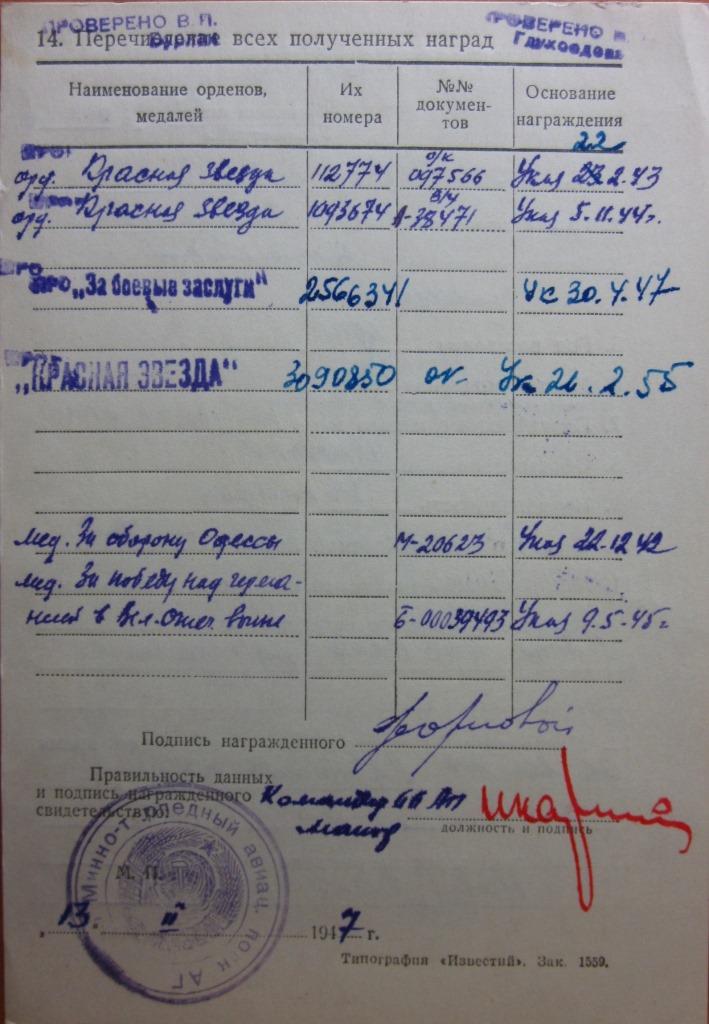 ПРОВЕРЕНО В.П. ПРОВЕРЕНО
14. Перечисление всех полученных наград
Наименование орденов, медалей
Их номера
№№ документов
Основание награждения
22
орд. Красная звезда 112774 о/к 097566 Указ 2.43
орд. Красная звезда 1093674 А-38471 Указ 5.11.44г.
ПРО „За боевые заслуги" 2566341 Ук 30.4.47
„КРАСНАЯ ЗВЕЗДА" 3090850 ок- Ук 26.2.55
мед. За оборону Одессы М-20623 Указ 22.12.42
мед. За победу над герма-
нией в Вел. Отеч. войне Б-00039493 Указ 9.5.45г
Подпись награжденного
Правильность данных
и подпись награжденного Командир
свидетельствую: Майор
должность и подпись
Минно-торпедный авиац. полк
М. П.
„13" II 1947 г.
Типография «Известий». Зак. 1559.